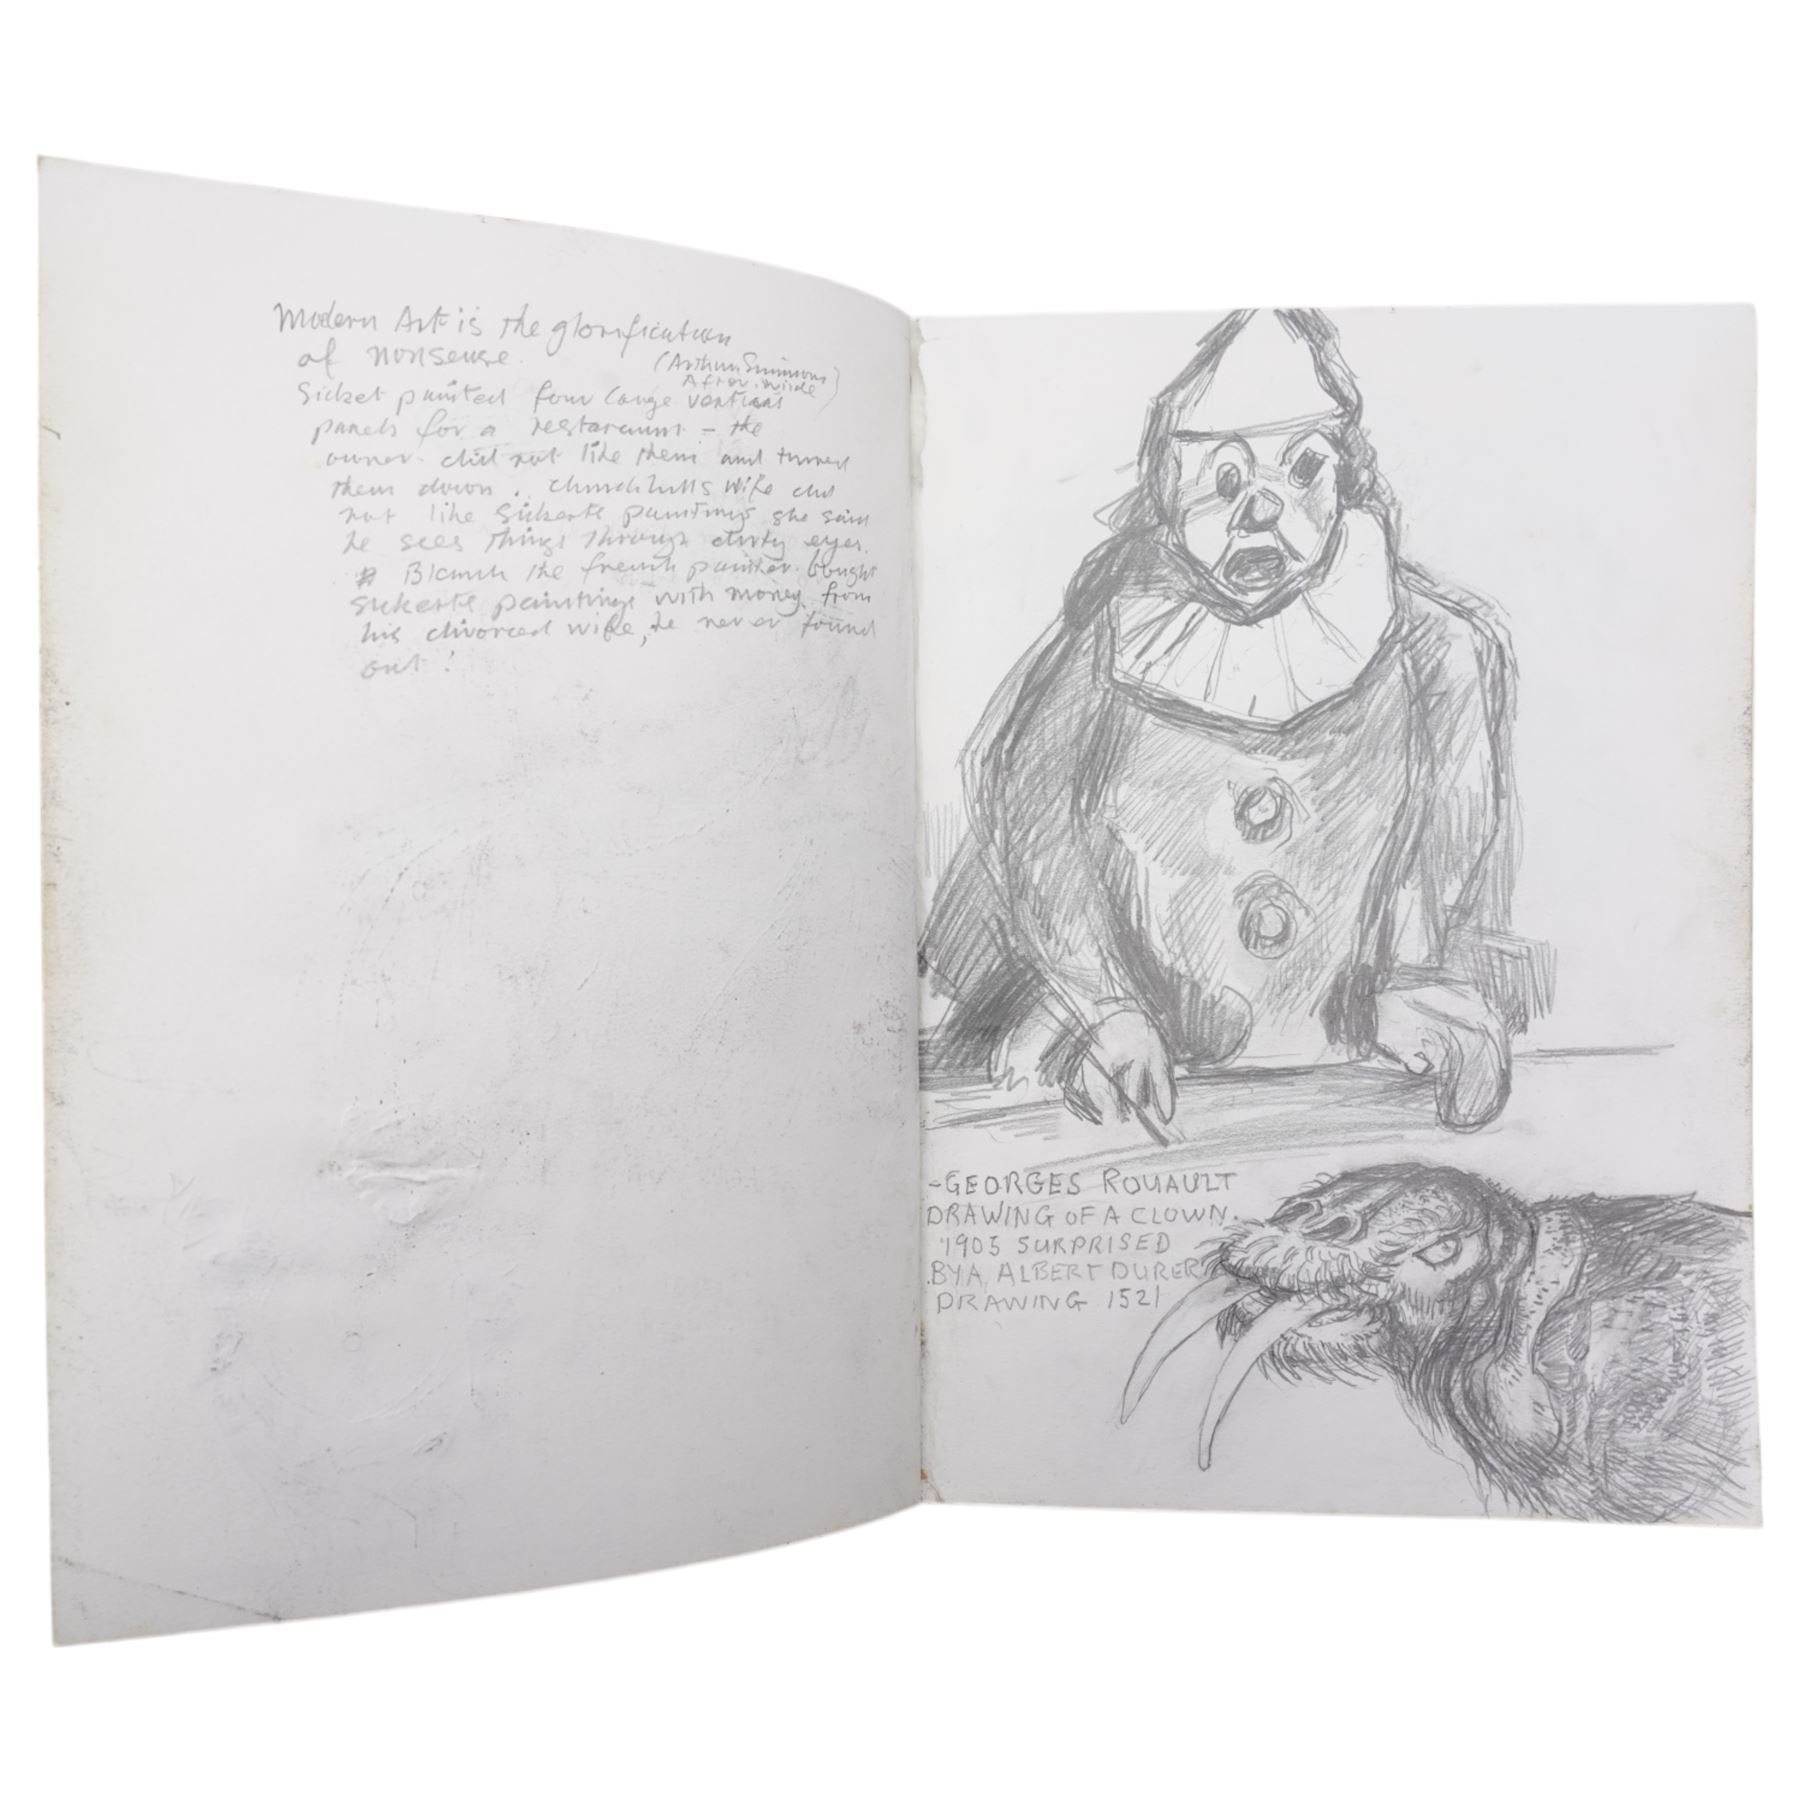 Modern Art is the glorification
of nonsense.
(Arthur Simmons
After. Wilde)
Sicket painted four large vertical
panels for a restaraunt - the
owner did not like them and turned
them down. Churchills wife did
not like Sickerts paintings she said
he sees things through dirty eyes.
Blanch the french painter bought
Sickerts paintings with money from
his divorced wife, he never found
out!
-GEORGES ROUAULT
DRAWING OF A CLOWN.
1905 SURPRISED
BY A ALBERT DURER
DRAWING 1521